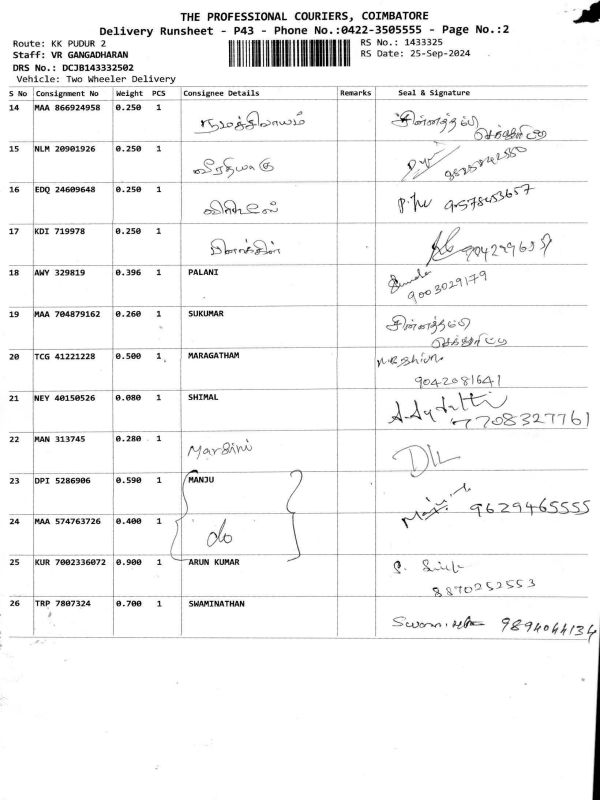 THE PROFESSIONAL COURIERS, COIMBATORE
Delivery Runsheet - P43 - Phone No.:0422-3505555 - Page No.:2
Route: KK PUDUR 2
RS No.: 1433325
Staff: VR GANGADHARAN
RS Date: 25-Sep-2024
DRS No.: DCJB143332502
Vehicle: Two Wheeler Delivery
S No Consignment No Weight PCS Consignee Details Remarks Seal & Signature
14 MAA 866924958 0.250 1 நமச்சிவாயம் சின்னத்தம்பி
15 NLM 20901926 0.250 1
16 EDQ 24609648 0.250 1 9578453657
17 KDI 719978 0.250 1
18 AWY 329819 0.396 1 PALANI
9003029179
19 MAA 704879162 0.260 1 SUKUMAR சின்னத்தம்பி
20 TCG 41221228 0.500 1 MARAGATHAM
9042081641
21 NEY 40150526 0.080 1 SHIMAL
7708327761
22 MAN 313745 0.280 1 Margini
23 DPI 5286906 0.590 1 MANJU 9629465555
24 MAA 574763726 0.400 1 do
25 KUR 7002336072 0.900 1 ARUN KUMAR
8870252553
26 TRP 7807324 0.700 1 SWAMINATHAN 9894044134